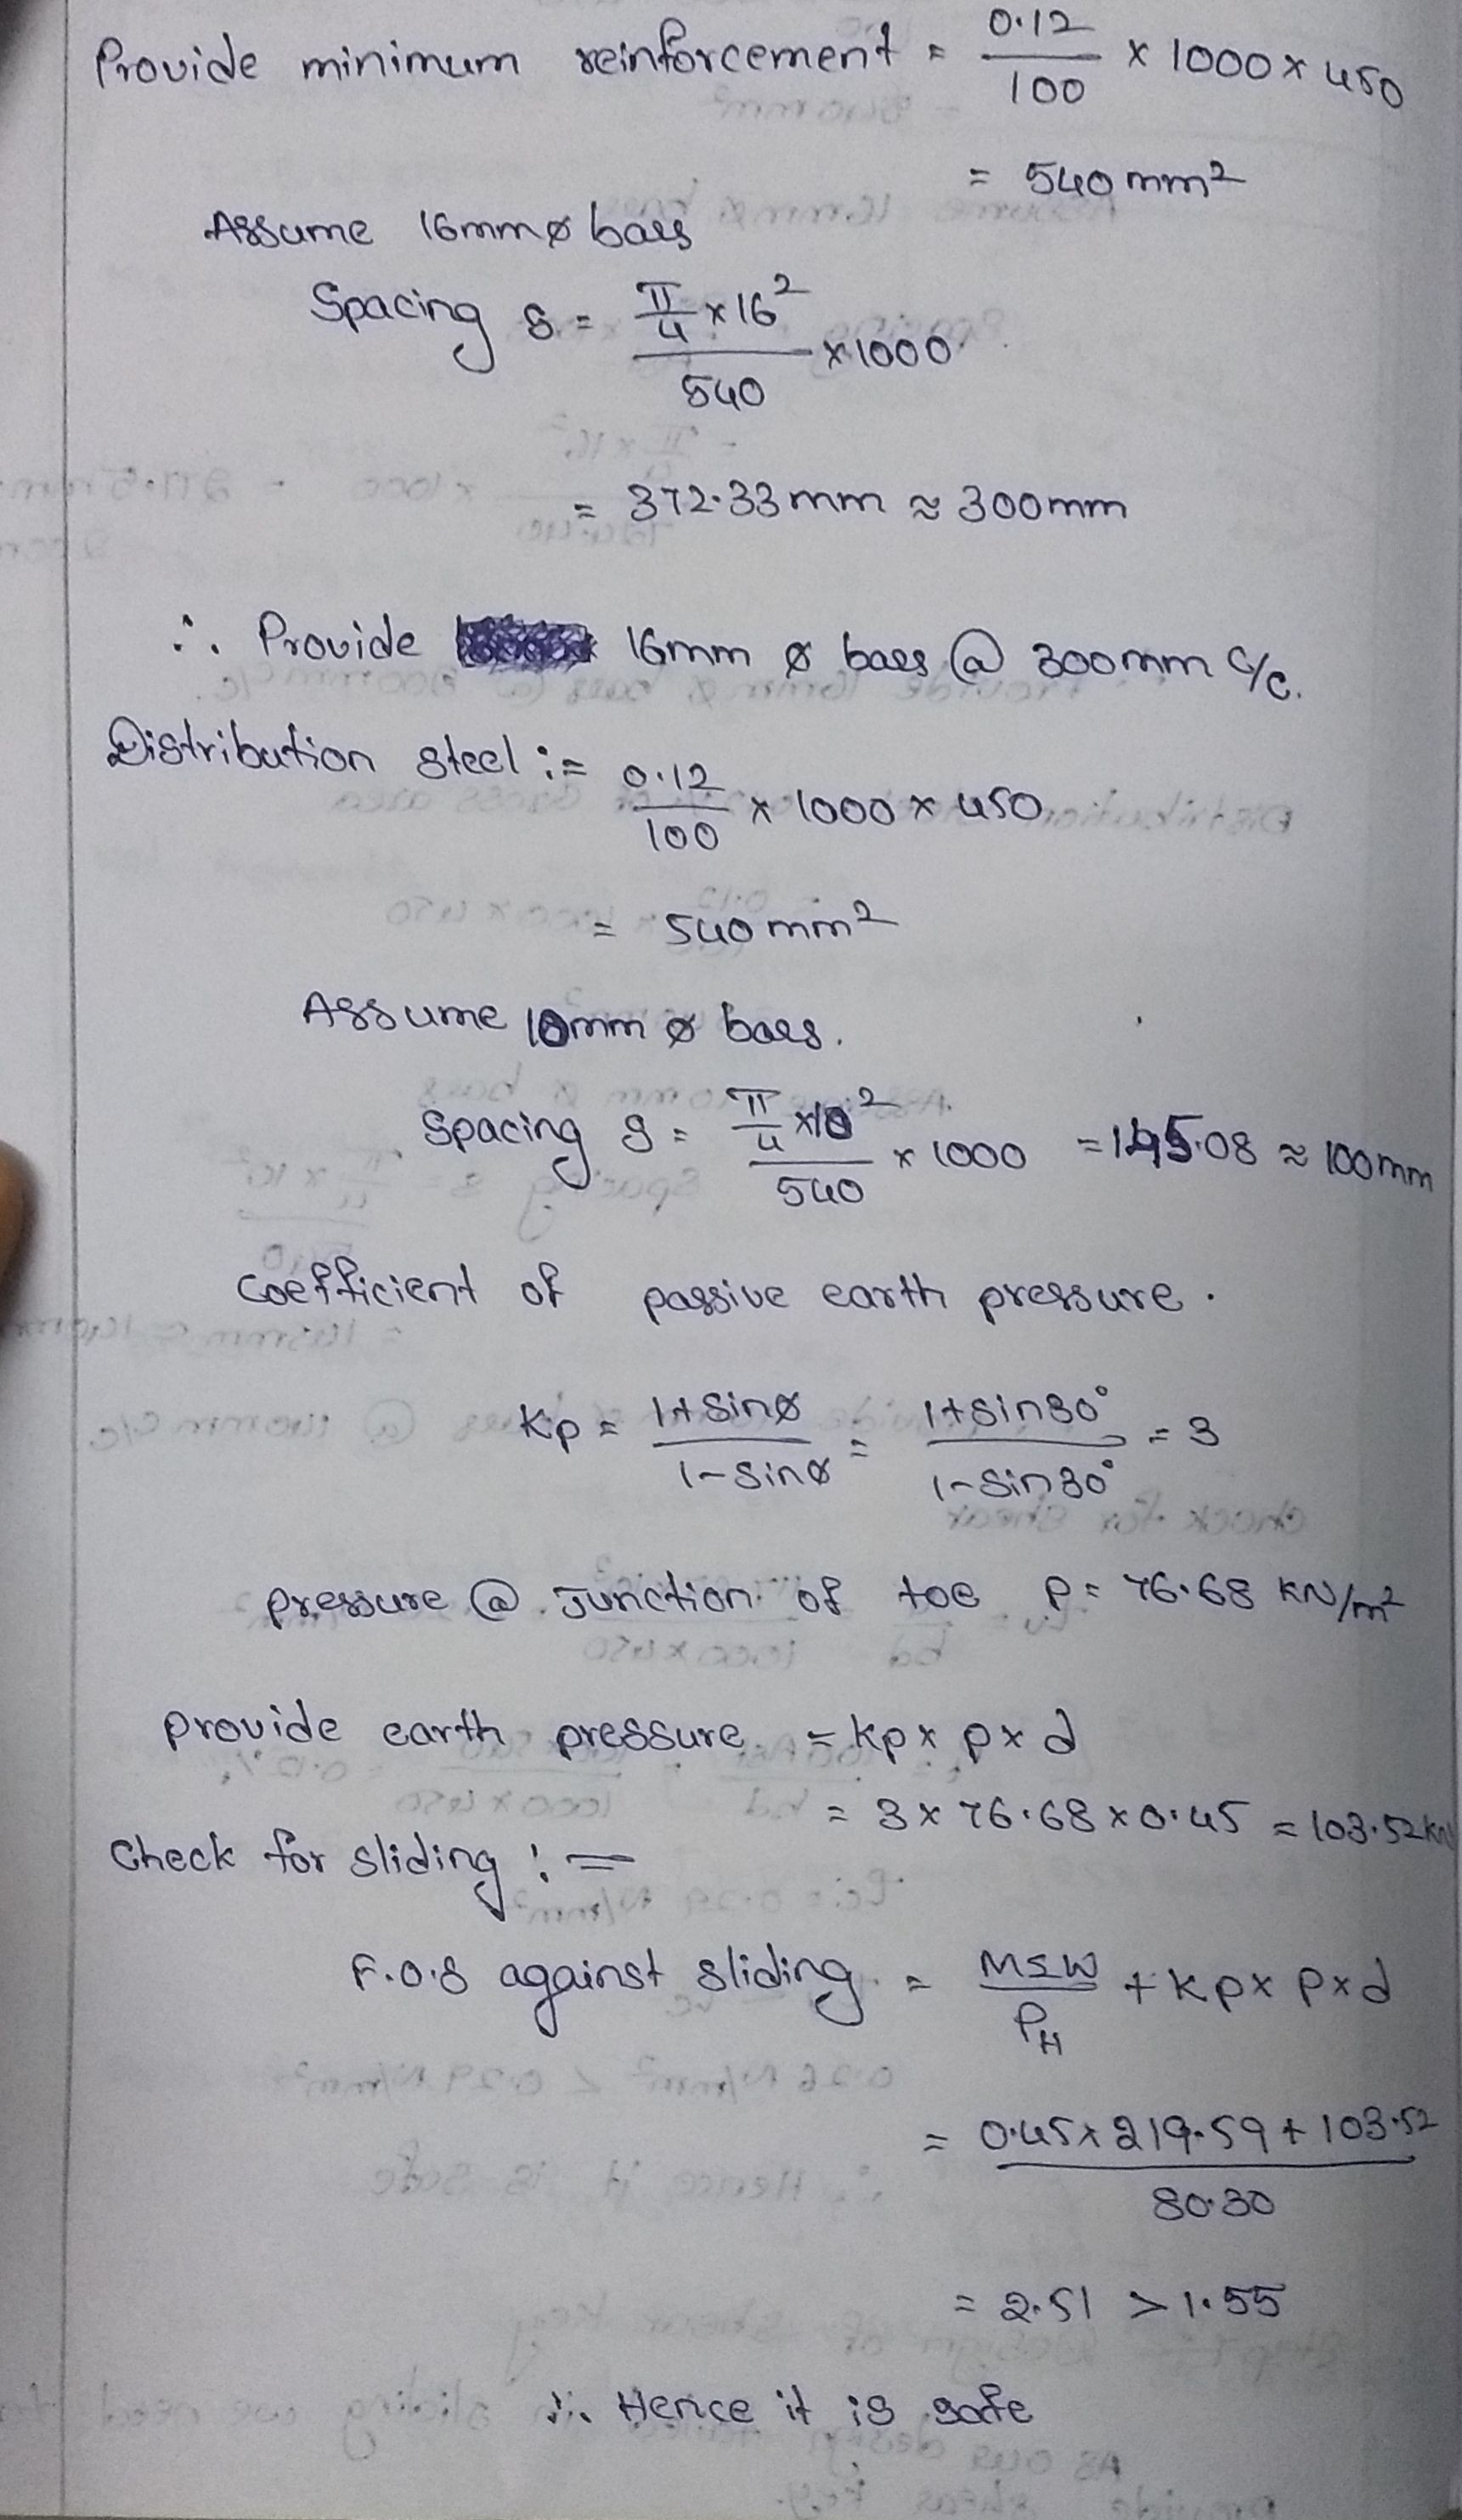 Provide minimum reinforcement = 0.12/100 × 1000 × 450
= 540 mm²
Assume 16mm ø bars
Spacing S = (π/4 × 16²)/540 × 1000
= 372.33 mm ≈ 300 mm
∴ Provide 16mm ø bars @ 300 mm c/c.
Distribution steel := 0.12/100 × 1000 × 450
= 540 mm²
Assume 10mm ø bars.
Spacing S = (π/4 × 10²)/540 × 1000 = 145.08 ≈ 100 mm
coefficient of passive earth pressure.
Kp = (1+sinø)/(1-sinø) = (1+sin30°)/(1-sin30°) = 3
pressure @ Junction of toe P = 76.68 kN/m²
provide earth pressure = kp × p × d
= 3 × 76.68 × 0.45 = 103.52 kN
Check for sliding :=
F.O.S against sliding = MΣW/PH + Kp × P × d
= (0.45 × 219.59 + 103.52)/80.30
= 2.51 > 1.55
∴ Hence it is safe